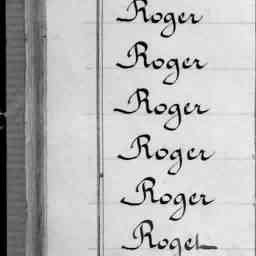 Roger
Roger
Roger
Roger
Roger
Roget